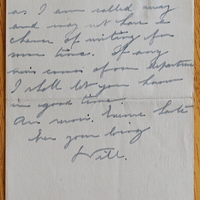 as I am called away
and may not have a
chance of writing for
some time. If any
news comes of our departure
I shall let you know
in good time.
Au revoir,
your loving
Will.